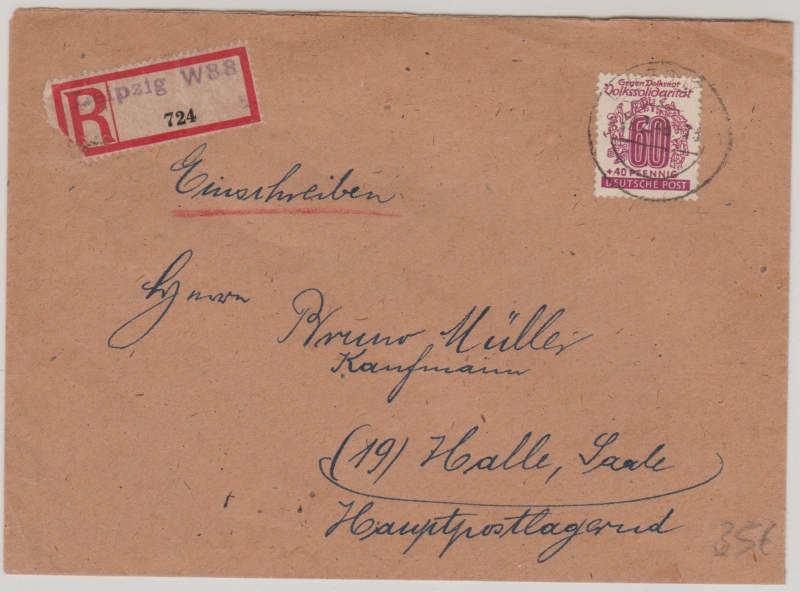 Leipzig W33
R
724
Gegen Volksnot
Volkssolidarität
60
+40 PFENNIG
DEUTSCHE POST
Einschreiben
Herrn
Bruno Müller
Kaufmann
(19) Halle, Saale
Hauptpostlagernd
35€